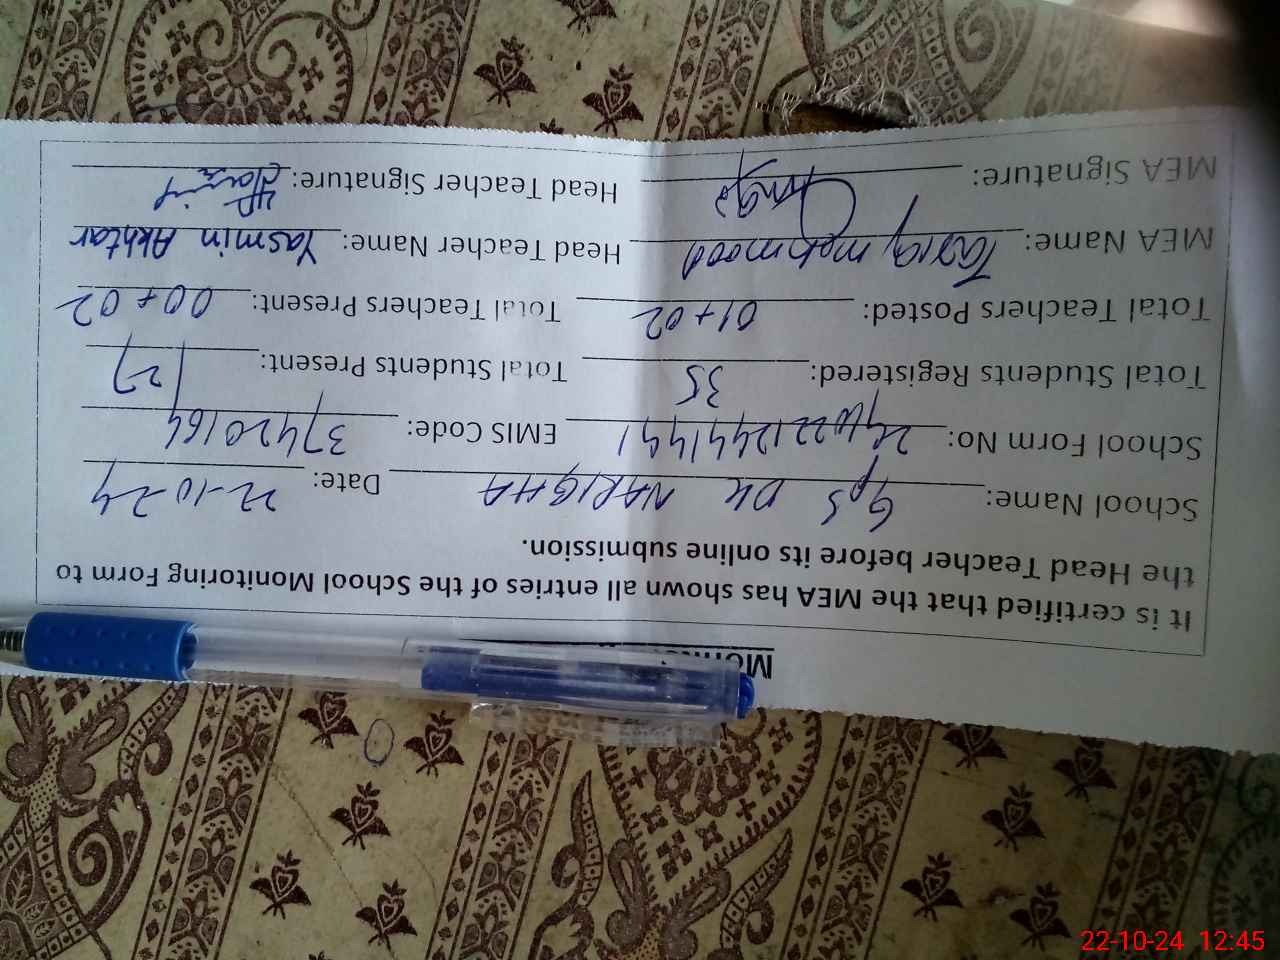 It is certified that the MEA has shown all entries of the School Monitoring Form to
the Head Teacher before its online submission.
School Name: GPS DK NARIGHA Date: 22-10-24
School Form No: EMIS Code: 37420164
Total Students Registered: 35 Total Students Present: 27
Total Teachers Posted: 01+02 Total Teachers Present: 00+02
MEA Name: Tariq mehmood Head Teacher Name: Yasmin Akhtar
MEA Signature: Head Teacher Signature:
22-10-24 12:45